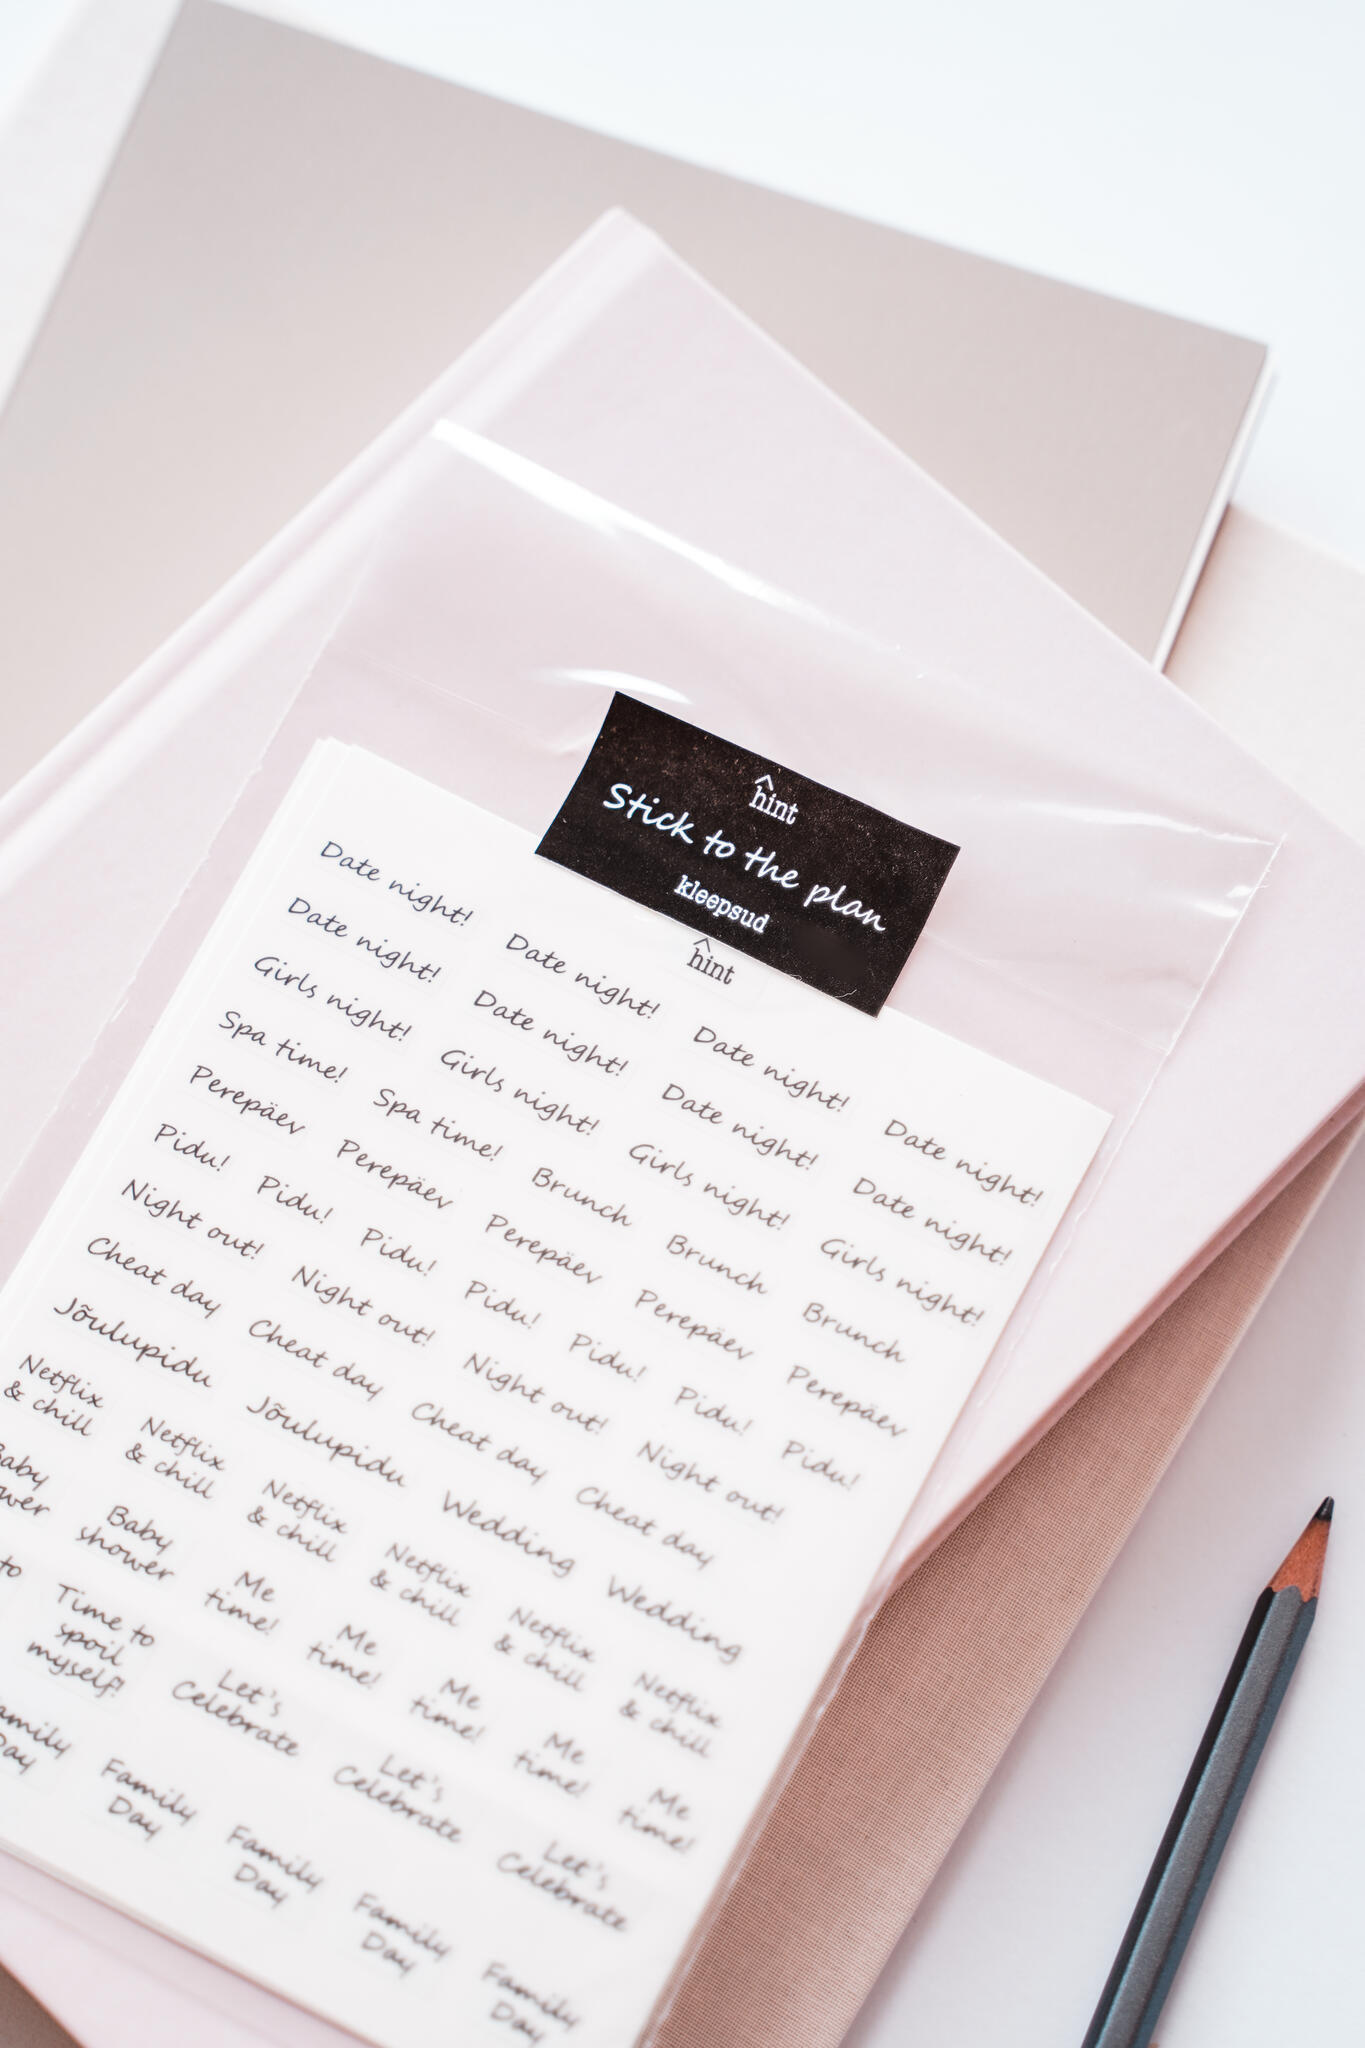 hint
Stick to the plan
kleepsud
hint
Date night! Date night! Date night! Date night!
Date night! Date night! Date night! Date night!
Girls night! Girls night! Girls night! Girls night!
Spa time! Spa time! Brunch Brunch Brunch
Perepäev Perepäev Perepäev Perepäev Perepäev
Pidu! Pidu! Pidu! Pidu! Pidu! Pidu! Pidu!
Night out! Night out! Night out! Night out!
Cheat day Cheat day Cheat day Cheat day
Jõulupidu Jõulupidu Wedding Wedding
Netflix Netflix Netflix Netflix Netflix Netflix
& chill & chill & chill & chill & chill & chill
Baby Baby Me Me Me Me Me
shower time! time! time! time! time!
to Time to Let's Let's Let's
spoil Celebrate Celebrate Celebrate
myself!
Family Family Family Family Family
Day Day Day Day Day